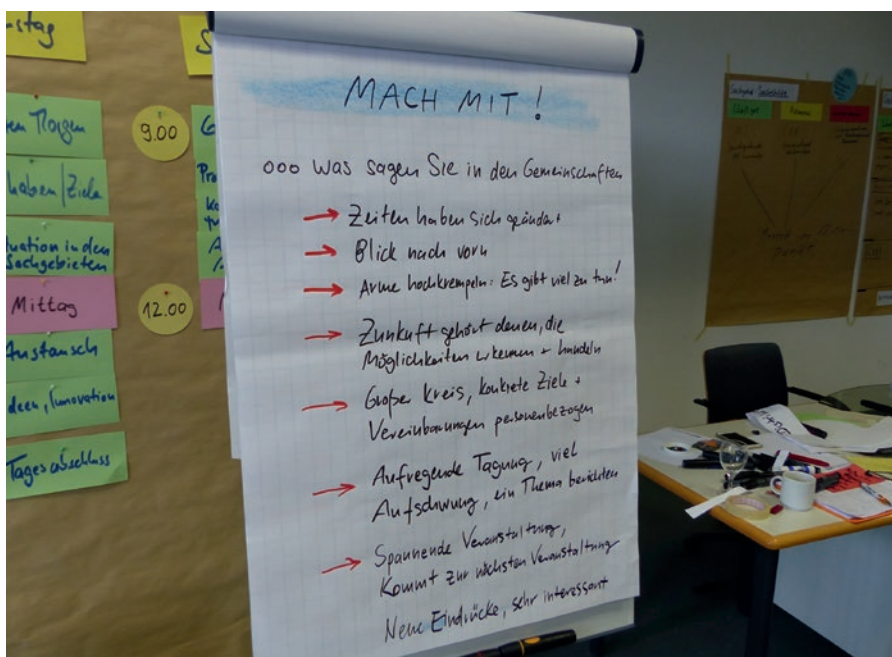 -stag
S
Morgen
9.00
haben/Ziele
tuation in den
Sachgebieten
Mittag
12.00
Austausch
deen, Innovation
Tagesabschluss
MACH MIT!
ooo Was sagen Sie in den Gemeinschaften
→ Zeiten haben sich geändert
→ Blick nach vorn
→ Arme hochkrempeln: Es gibt viel zu tun!
→ Zunkuft gehört denen, die
Möglichkeiten erkennen + handeln
→ Großer Kreis, konkrete Ziele +
Vereinbarungen personenbezogen
→ Aufregende Tagung, viel
Aufschwung, ein Thema berichten
→ Spannende Veranstaltung,
Kommt zur nächsten Veranstaltung
Neue Eindrücke, sehr interessant